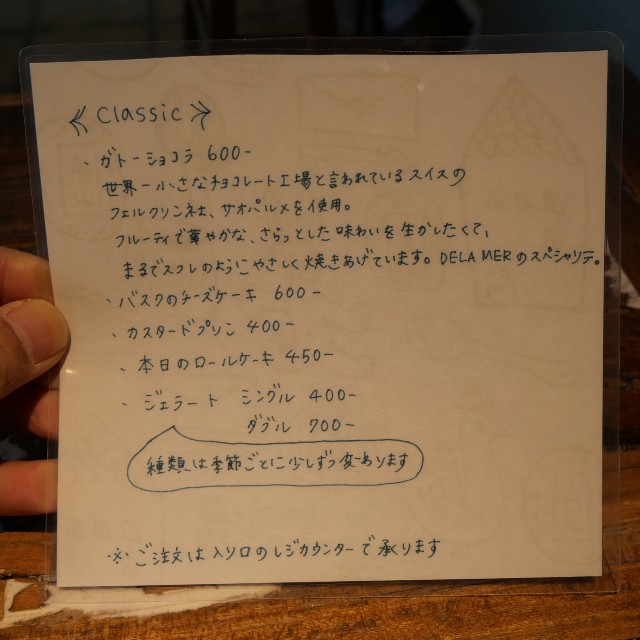 ≪ classic ≫
・ガトーショコラ 600-
世界一小さなチョコレート工場と言われているスイスの
フェルクリン社、サオパルメを使用。
フルーティで華やかな、さらっとした味わいを生かしたくて、
まるでスフレのようにやさしく焼きあげています。DELA MERのスペシャリテ。
・バスクのチーズケーキ 600-
・カスタードプリン 400-
・本日のロールケーキ 450-
・ジェラート シングル 400-
ダブル 700-
種類は季節ごとに少しずつ変わります
※ご注文は入り口のレジカウンターで承ります